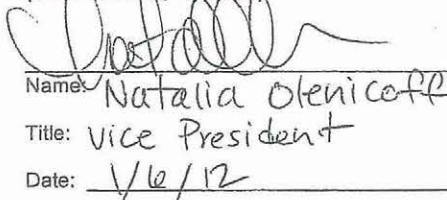 Name: Natalia Olenicoff
Title: Vice President
Date: 1/6/12